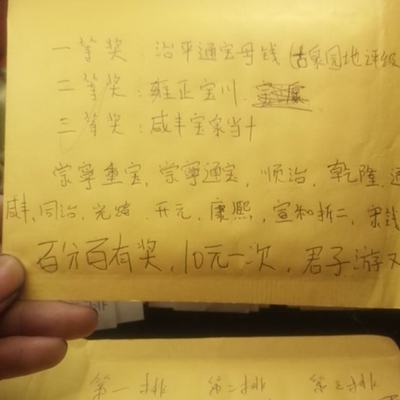 一等奖：治平通宝母钱(古泉园地评级
二等奖：雍正宝川
三等奖：咸丰宝泉当十
崇宁重宝，崇宁通宝，顺治，乾隆，道
咸丰，同治，光绪，开元，康熙，宣和折二，宋钱
百分百有奖，10元一次，君子游戏
第一排 第二排 第三排